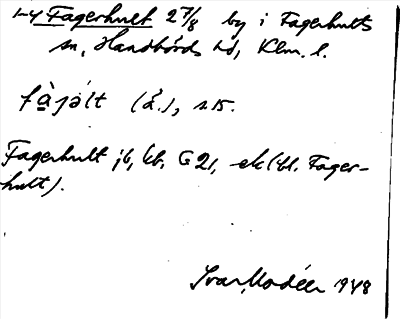 1-4 Fagerhult 27/8 by i Fagerhults
sn, Handbörds hd, Klm. l.
fàjəlt (a.), s15.
Fagerhult jb, kb, G 21, ek (bl. Fager-
hult).
Ivar Modéer 1948